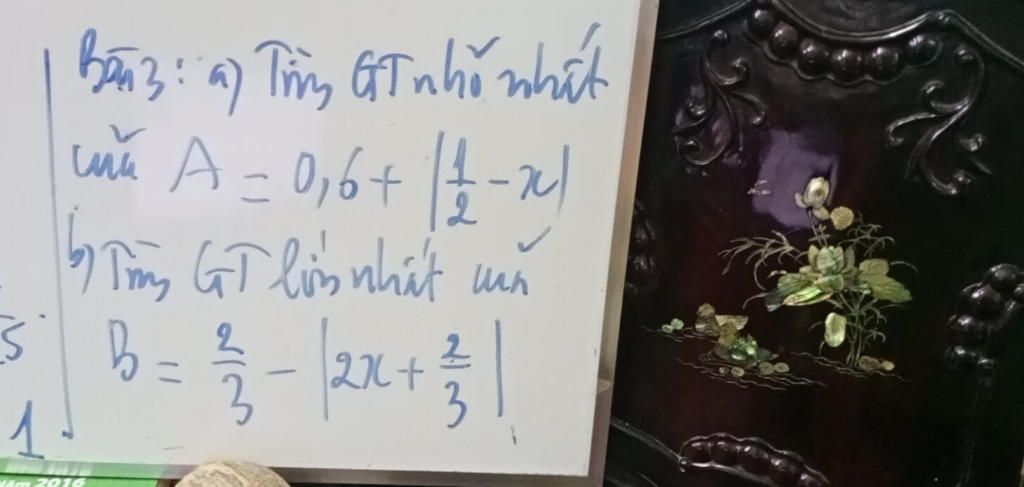 Bài 3: a) Tìm GT nhỏ nhất
của A = 0,6 + |1/2 - x|
b) Tìm GT lớn nhất của
B = 2/3 - |2x + 2/3|
5
1
NĂM 2016